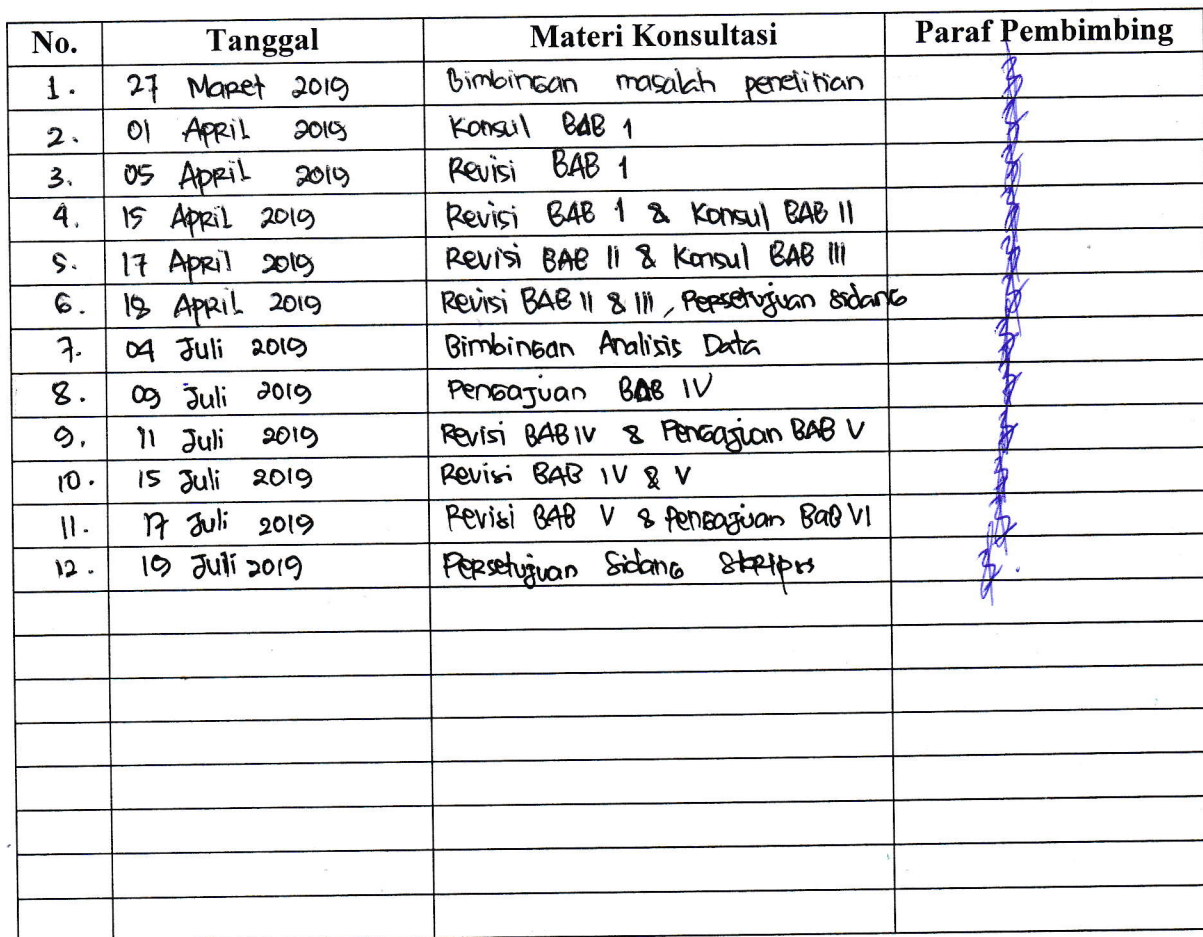 No. Tanggal Materi Konsultasi Paraf Pembimbing
1. 27 Maret 2019 Bimbingan masalah penelitian
2. 01 April 2019 Konsul BAB 1
3. 05 April 2019 Revisi BAB 1
4. 15 April 2019 Revisi BAB 1 & Konsul BAB II
5. 17 April 2019 Revisi BAB II & Konsul BAB III
6. 18 April 2019 Revisi BAB II & III, Persetujuan sidang
7. 04 Juli 2019 Bimbingan Analisis Data
8. 09 Juli 2019 Pengajuan BAB IV
9. 11 Juli 2019 Revisi BAB IV & Pengajuan BAB V
10. 15 Juli 2019 Revisi BAB IV & V
11. 17 Juli 2019 Revisi BAB V & Pengajuan BAB VI
12. 19 Juli 2019 Persetujuan Sidang